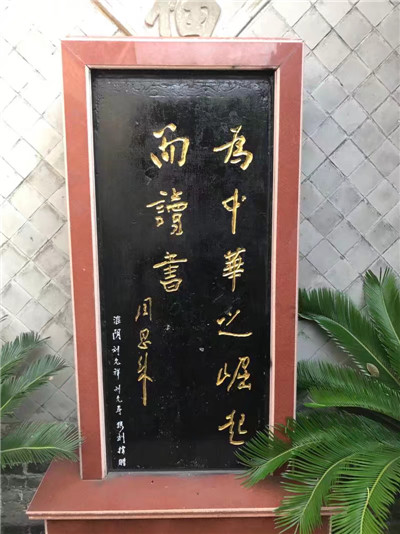 為中華之崛起
而讀書
周恩来
淮阴